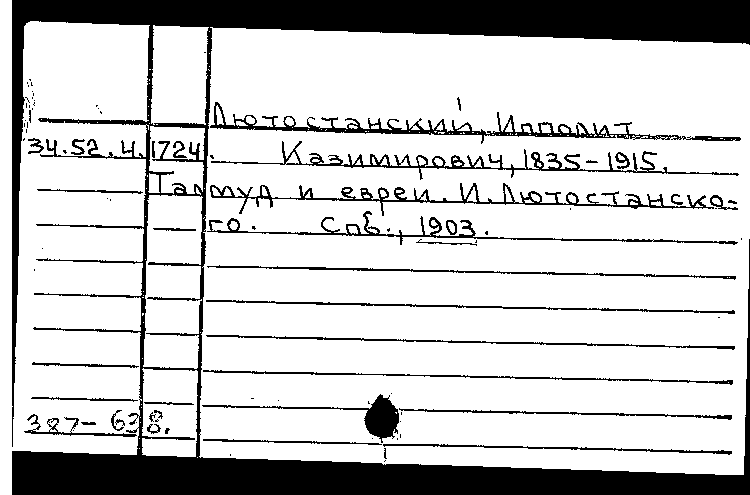 Лютостанский, Ипполит
34.52.4.1724. Казимирович, 1835-1915.
Талмуд и евреи. И. Лютостанско=
го. Спб., 1903.
387-638.